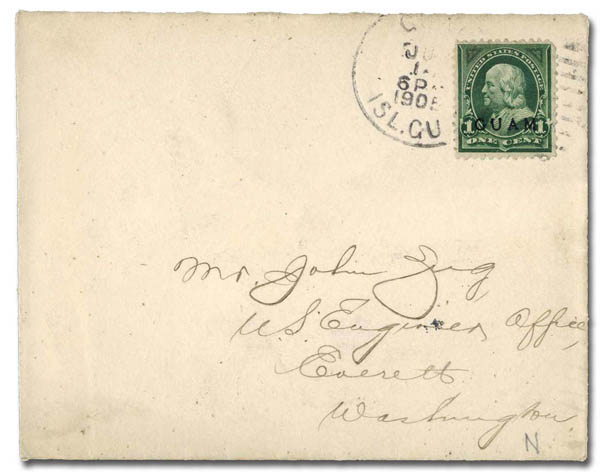 JU
6P
190
ISL. GU
UNITED STATES POSTAGE
1 GUAM 1
ONE CENT
Mr. John Zug
U.S. Engineer Office,
Everett
Washington.
N